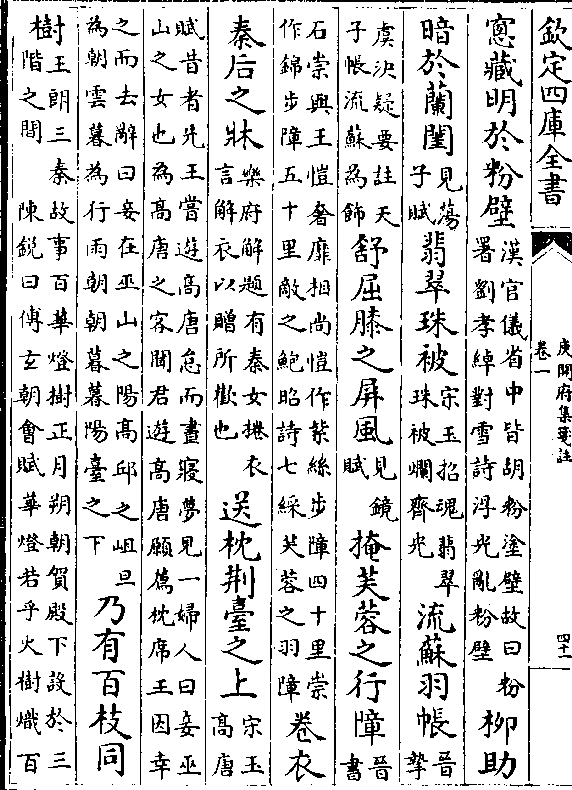 欽定四庫全書
庾開府集箋註
卷一
四十一
窓藏明於粉壁漢官儀省中皆胡粉塗壁故曰粉署劉孝綽對雪詩浮光亂粉壁柳助
暗於蘭閨見蕩子賦翡翠珠被宋玉招魂翡翠珠被爛齊光流蘇羽帳晉摯
虞決疑要註天子帳流蘇為飾舒屈膝之屏風見鏡賦掩芙蓉之行障晉書
石崇與王愷奢靡相尚愷作紫絲步障四十里崇作錦步障五十里敵之鮑昭詩七綵芙蓉之羽障卷衣
秦后之牀樂府解題有秦女捲衣言解衣以贈所歡也送枕荆臺之上宋玉高唐
賦昔者先王嘗遊高唐怠而晝寢夢見一婦人曰妾巫山之女也為高唐之客聞君遊高唐願薦枕席王因幸
之而去辭曰妾在巫山之陽高邱之岨旦為朝雲暮為行雨朝朝暮暮陽臺之下乃有百枝同
樹王朗三秦故事百華燈樹正月朔朝賀殿下設於三階之間 陳鋭曰傅玄朝會賦華燈若乎火樹熾百